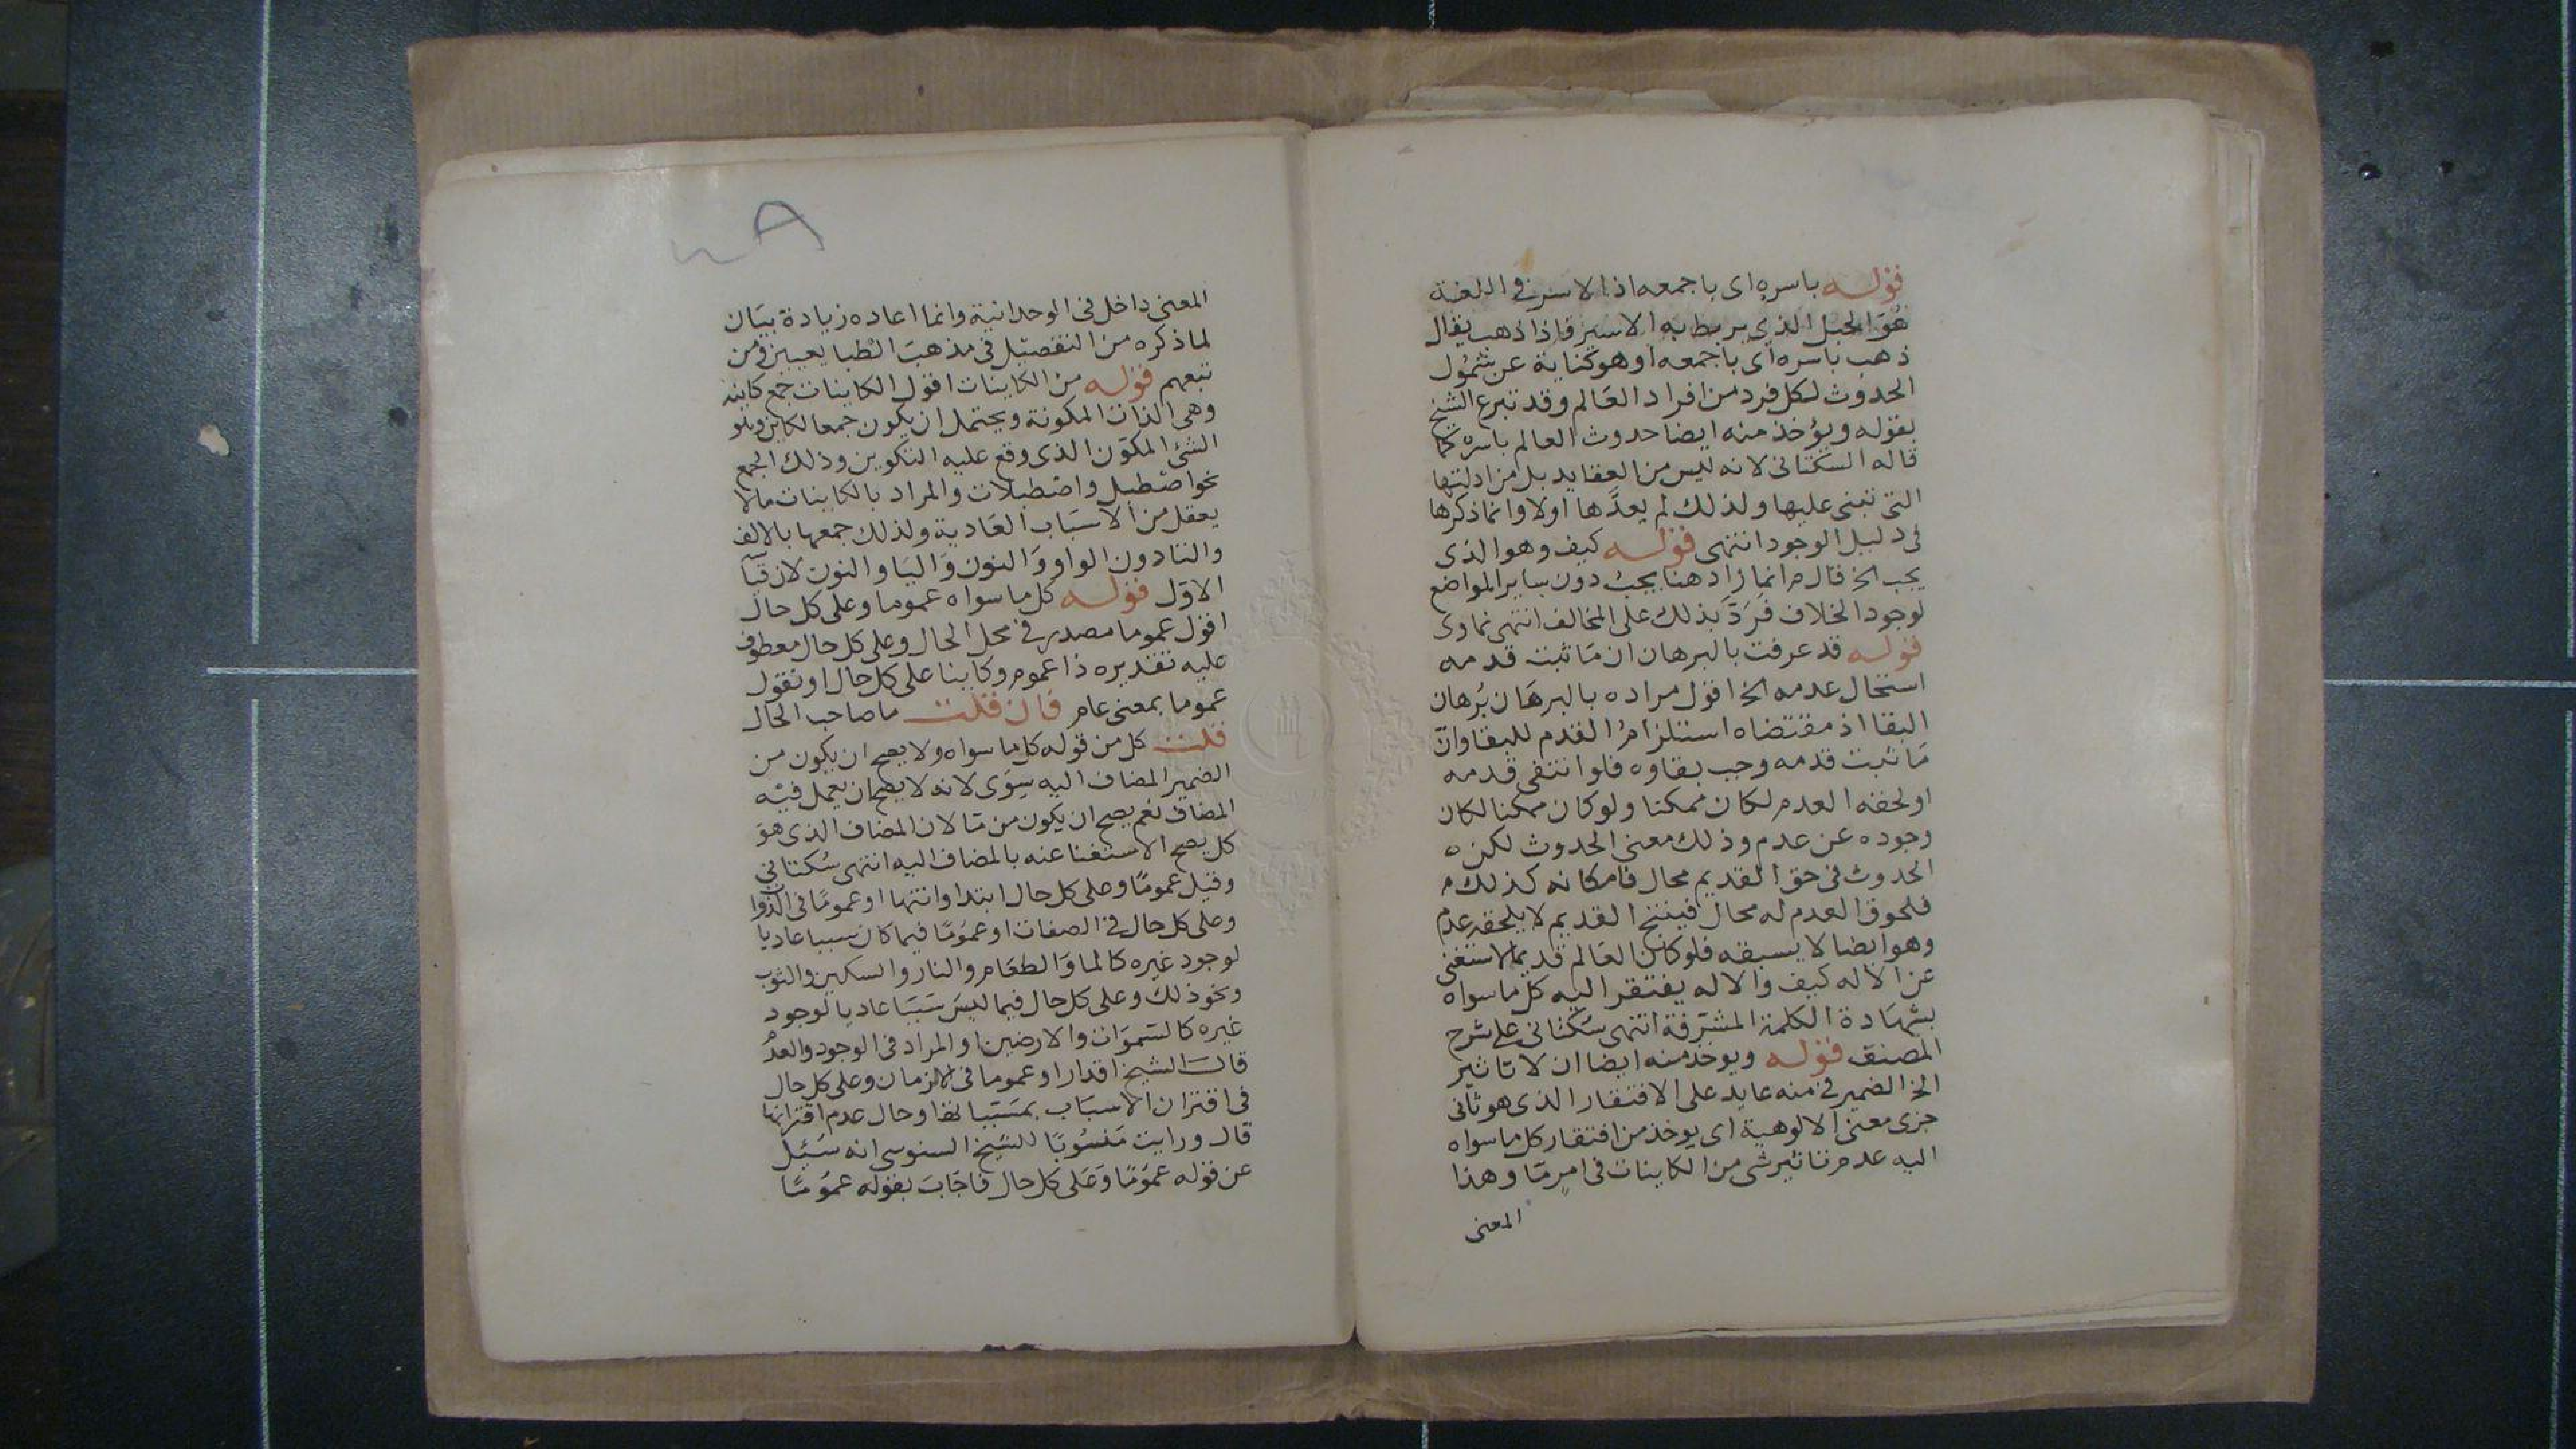 قوله باسره اى باجمعه اذ الاسر فى اللغة
هو الحبل الذى يربط به الاسير فاذا ذهب يقال
ذهب باسره اى باجمعه او هو كناية عن شمول
الحدوث لكل فرد من افراد العالم وقد تبرع الشيخ
بقوله ويؤخذ منه ايضا حدوث العالم باسره كما
قاله السكتانى لانه ليس من العقايد بل من ادلتها
التى تبنى عليها ولذلك لم يعدها اولا وانما ذكرها
فى دليل الوجود انتهى قوله كيف وهو الذى
يجب الخ قال م انما زاد هنا يجب دون ساير المواضع
لوجود الخلاف فرد بذلك على المخالف انتهى
قوله قد عرفت بالبرهان ان ما ثبت قدمه
استحال عدمه الخ اقول مراده بالبرهان برهان
البقا اذ مقتضاه استلزام القدم للبقا وان
ما ثبت قدمه وجب بقاوه فلو انتفى قدمه
او لحقه العدم لكان ممكنا ولو كان ممكنا لكان
وجوده عن عدم وذلك معنى الحدوث لكن
الحدوث فى حق القديم محال فامكانه كذلك
فلحوق العدم له محال فينتج القديم لا يلحقه عدم
وهو ايضا لا يسبقه فلو كان العالم قديما لاستغنى
عن الاله كيف والاله يفتقر اليه كل ما سواه
بشهادة الكلمة المشرفة انتهى سكتانى على شرح
المصنف قوله ويوخذ منه ايضا ان لا تاثير
الخ الضمير فى منه عايد على الافتقار الذى هو ثانى
جزى معنى الالوهية اى يوخذ من افتقار كل ما سواه
اليه عدم تاثير شى من الكاينات فى امر ما وهذا
المعنى
المعنى داخل فى الوحدانية وانما اعاده زيادة بيان
لما ذكره من التفصيل فى مذهب الطبايعيين ومن
تبعهم قوله من الكاينات اقول الكاينات جمع كاينة
وهى الذات المكونة ويحتمل ان يكون جمعا لكاين وهو
الشئ المكون الذى وقع عليه التكوين وذلك الجمع
نحو اصطبل واصطبلات والمراد بالكاينات ما لا
يعقل من الاسباب العادية ولذلك جمعها بالالف
والتا دون الواو والنون واليا والنون لان
الاول قوله كل ما سواه عموما وعلى كل حال
اقول عموما مصدر فى محل الحال وعلى كل حال معطوف
عليه تقديره ذا عموم وكاينا على كل حال او تقول
عموما بمعنى عام فان قلت ما صاحب الحال
قلت كل من قوله كل ما سواه ولا يصح ان يكون من
الضمير المضاف اليه سوى لانه لا يصح ان يعمل فيه
المضاف نعم يصح ان يكون من ما لان المضاف الذى هو
كل يصح الاستغنا عنه بالمضاف اليه انتهى سكتانى
وقيل عموما وعلى كل حال ابتدا وانتها او عموما فى الذوات
وعلى كل حال فى الصفات او عموما فيما كان سببا عاديا
لوجود غيره كالما والطعام والنار والسكين والثوب
ونحو ذلك وعلى كل حال فيما ليس سببا عاديا لوجود
غيره كالسموات والارضين او المراد فى الوجود والعدم
قال الشيخ اقدار او عموما فى الازمان وعلى كل حال
فى اقتران الاسباب بمسبباتها وحال عدم اقترانها
قال ورايت منسوبا للشيخ السنوسى انه سئل
عن قوله عموما وعلى كل حال فاجاب بقوله عموما